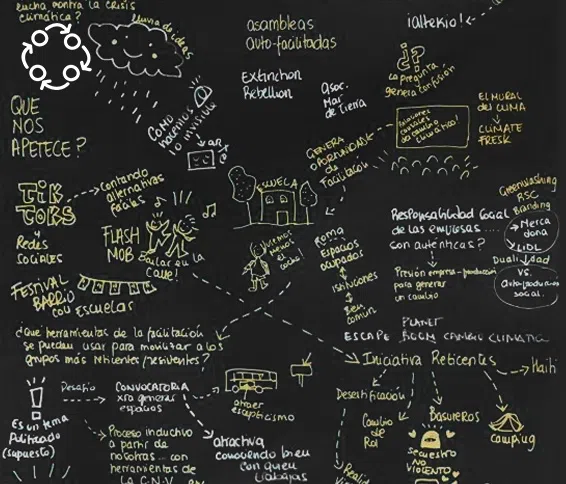 lucha contra la crisis
climática?
lluvia de ideas
asambleas
auto-facilitadas
¡altekio!
Extinction
Rebellion
Asoc.
Mar
de Tierra
¿?
La pregunta
genera tensión
EL MURAL
DEL CLIMA
CLIMATE
FRESK
QUE
NOS
APETECE?
COMO
hacemos
lo invisible
GENERA
OPORTUNIDADES
de
Facilitación
TIK
TOKS
y
Redes
Sociales
contando
alternativas
fáciles
FLASH
MOB
Bailar en la
Calle!
ESCUELA
coche
ROMA
Espacios
ocupados
Bien
común
Responsabilidad Social
de las empresas ....
son auténticas?
Presión empresa-producción
para generar
un cambio
Greenwashing
RSC
Branding
Merca
dona
LIDL
Dualidad
VS.
social.
FESTIVAL
BARRIO
con ESCUELAS
¿Que herramientas de la facilitación
se puedan usar para movilizar a los
grupos más reticentes/resistentes?
PLANET
ESCAPE ROOM CAMBIO CLIMÁTICO
Iniciativa Reticentes
Haiti
Desertificación
Cambio
de
Rol
Basureros
Secuestro
NO
VIOLENTO
camping
!
Es un tema
Politizado
(supuesto)
Desafío
CONVOCATORIA
xra generar
espacios
atraer
escepticismo
Proceso inductivo
a partir de
nosotras... con
herramientas de
la C.N.V
atractiva
conociendo bien
con quien
trabajas